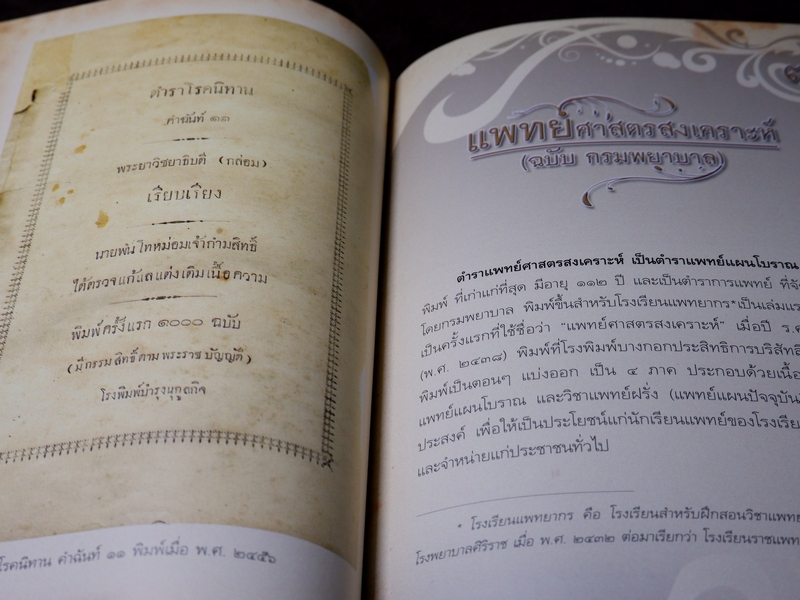 ตำราโรคนิทาน
คำฉันท์ ๑๑
พระยาวิชยาธิบดี (กล่อม)
เรียบเรียง
นายพัน ไทหม่อมเจ้ากำมสิทธิ์
ได้ตรวจแก้แลแต่งเติมเนื้อความ
พิมพ์ครั้งแรก ๑๐๐๐ ฉบับ
(มีกรรมสิทธิ์ตามพระราชบัญญัติ)
โรงพิมพ์บำรุงนุกูลกิจ
โรคนิทาน คำฉันท์ ๑๑ พิมพ์เมื่อ พ.ศ. ๒๔๕๖
แพทย์ศาสตรสงเคราะห์
(ฉบับ กรมพยาบาล)
ตำราแพทย์ศาสตรสงเคราะห์ เป็นตำราแพทย์แผนโบราณ
พิมพ์ ที่เก่าแก่ที่สุด มีอายุ ๑๑๒ ปี และเป็นตำราการแพทย์ ที่จั
โดยกรมพยาบาล พิมพ์ขึ้นสำหรับโรงเรียนแพทยากร*เป็นเล่มแร
เป็นครั้งแรกที่ใช้ชื่อว่า "แพทย์ศาสตรสงเคราะห์" เมื่อปี ร.ศ
(พ.ศ. ๒๔๓๘) พิมพ์ที่โรงพิมพ์บางกอกประสิทธิการบริสัทลิ
พิมพ์เป็นตอนๆ แบ่งออก เป็น ๔ ภาค ประกอบด้วยเนื้อ
แพทย์แผนโบราณ และวิชาแพทย์ฝรั่ง (แพทย์แผนปัจจุบัน)
ประสงค์ เพื่อให้เป็นประโยชน์แก่นักเรียนแพทย์ของโรงเรีย
และจำหน่ายแก่ประชาชนทั่วไป
* โรงเรียนแพทยากร คือ โรงเรียนสำหรับฝึกสอนวิชาแพทย
โรงพยาบาลศิริราช เมื่อ พ.ศ. ๒๔๓๒ ต่อมาเรียกว่า โรงเรียนราชแพท